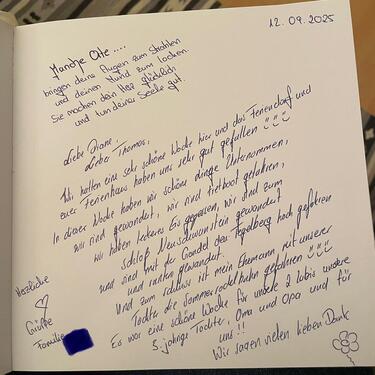 12.09.2025
Manche Orte....
bringen deine Augen zum Strahlen
und deinen Mund zum lachen.
Sie machen dein Herz glücklich
und tun deiner Seele gut.
Liebe Diane,
Lieber Thomas,
Wir hatten eine sehr schöne Woche hier und das Feriendorf und
euer Ferienhaus haben uns sehr gut gefallen
In dieser Woche haben wir schöne dinge Unternommen,
wir sind gewandert, wir sind Tretboot gefahren,
wir haben leckeres Eis gegessen, wir sind zum
Schloß Neuschwanstein gewandert
und sind mit der Gondel den Tegelberg hoch gefahren
und runter gewandert.
Und zum schluss ist mein Ehemann mit unserer
Tochter die Sommerrodelbahn gefahren
Es war eine schöne Woche für unsere 2 Wobis unsere
3. jährige Tochter, Oma und Opa und für
uns!!
Wir sagen vielen lieben Dank
Herzliche
Grüße
Familie